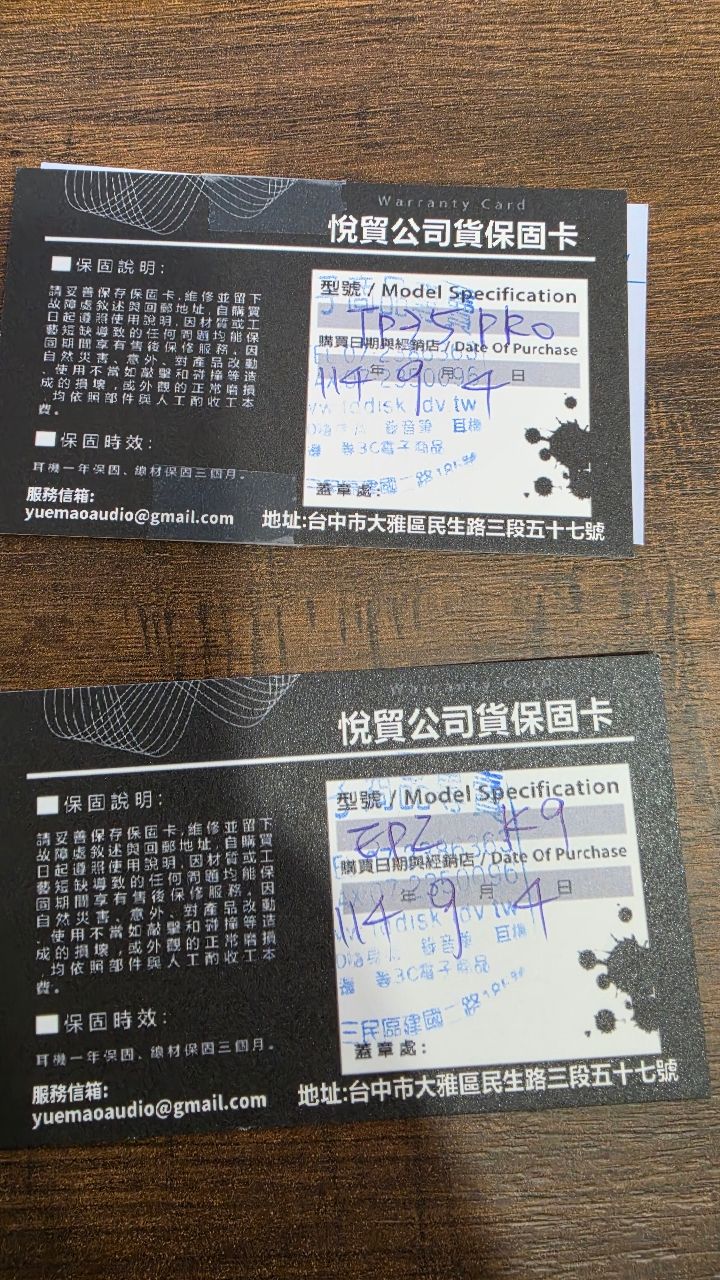 Warranty Card
悅貿公司貨保固卡
保固說明:
請妥善保存保固卡,維修並留下
故障處敘述與回郵地址,自購買
日起遵照使用說明,因材質或工
藝短缺導致的任何問題均能保
固期間享有售後保修服務,因
自然災害、意外、對產品改動
、使用不當如敲擊和碰撞等造
成的損壞,或外觀的正常磨損
,均依照部件與人工酌收工本
費。
保固時效:
耳機一年保固、線材保固三個月。
服務信箱:
yuemaoaudio@gmail.com
型號 / Model Specification
TP35 PRO
購買日期與經銷店 / Date Of Purchase
114年9月4日
錄音筆 耳機
3C電子商品
蓋章處:
地址:台中市大雅區民生路三段五十七號
Warranty Card
悅貿公司貨保固卡
保固說明:
請妥善保存保固卡,維修並留下
故障處敘述與回郵地址,自購買
日起遵照使用說明,因材質或工
藝短缺導致的任何問題均能保
固期間享有售後保修服務,因
自然災害、意外、對產品改動
、使用不當如敲擊和碰撞等造
成的損壞,或外觀的正常磨損
,均依照部件與人工酌收工本
費。
保固時效:
耳機一年保固、線材保固三個月。
服務信箱:
yuemaoaudio@gmail.com
型號 / Model Specification
EPZ K9
購買日期與經銷店 / Date Of Purchase
114年9月4日
錄音筆 耳機
3C電子商品
三民區建國二路
蓋章處:
地址:台中市大雅區民生路三段五十七號